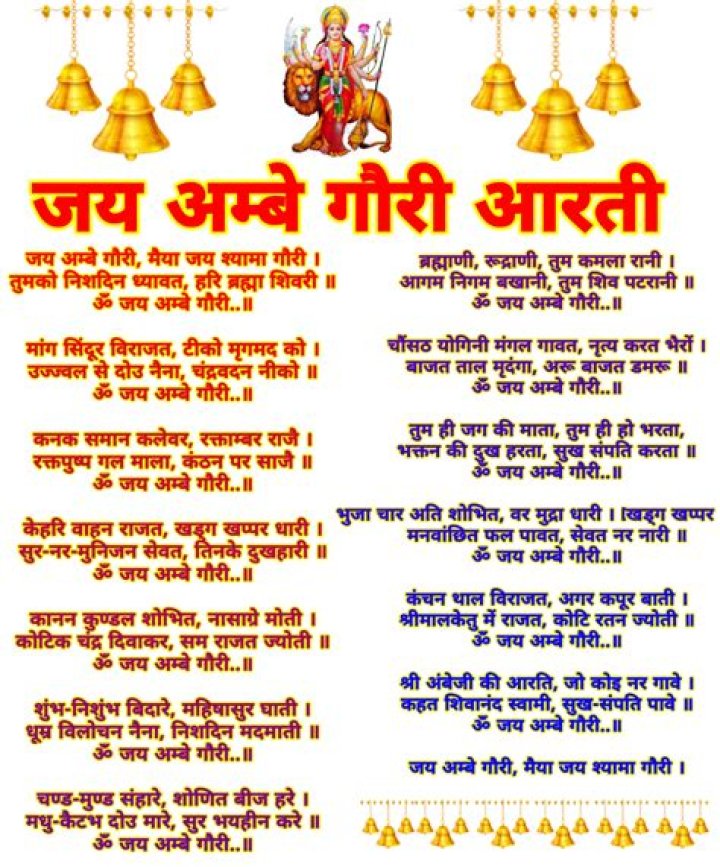 जय अम्बे गौरी आरती
जय अम्बे गौरी, मैया जय श्यामा गौरी ।
तुमको निशदिन ध्यावत, हरि ब्रह्मा शिवरी ॥
ॐ जय अम्बे गौरी..॥
मांग सिंदूर विराजत, टीको मृगमद को ।
उज्ज्वल से दोउ नैना, चंद्रवदन नीको ॥
ॐ जय अम्बे गौरी..॥
कनक समान कलेवर, रक्ताम्बर राजै ।
रक्तपुष्प गल माला, कंठन पर साजै ॥
ॐ जय अम्बे गौरी..॥
केहरि वाहन राजत, खड्ग खप्पर धारी ।
सुर-नर-मुनिजन सेवत, तिनके दुखहारी ॥
ॐ जय अम्बे गौरी..॥
कानन कुण्डल शोभित, नासाग्रे मोती ।
कोटिक चंद्र दिवाकर, सम राजत ज्योती ॥
ॐ जय अम्बे गौरी..॥
शुंभ-निशुंभ बिदारे, महिषासुर घाती ।
धूम्र विलोचन नैना, निशदिन मदमाती ॥
ॐ जय अम्बे गौरी..॥
चण्ड-मुण्ड संहारे, शोणित बीज हरे ।
मधु-कैटभ दोउ मारे, सुर भयहीन करे ॥
ॐ जय अम्बे गौरी..॥
ब्रह्माणी, रूद्राणी, तुम कमला रानी ।
आगम निगम बखानी, तुम शिव पटरानी ॥
ॐ जय अम्बे गौरी..॥
चौंसठ योगिनी मंगल गावत, नृत्य करत भैरों ।
बाजत ताल मृदंगा, अरू बाजत डमरू ॥
ॐ जय अम्बे गौरी..॥
तुम ही जग की माता, तुम ही हो भरता,
भक्तन की दुख हरता, सुख संपति करता ॥
ॐ जय अम्बे गौरी..॥
भुजा चार अति शोभित, वर मुद्रा धारी । [खड्ग खप्पर
मनवांछित फल पावत, सेवत नर नारी ॥
ॐ जय अम्बे गौरी..॥
कंचन थाल विराजत, अगर कपूर बाती ।
श्रीमालकेतु में राजत, कोटि रतन ज्योती ॥
ॐ जय अम्बे गौरी..॥
श्री अंबेजी की आरति, जो कोइ नर गावे ।
कहत शिवानंद स्वामी, सुख-संपति पावे ॥
ॐ जय अम्बे गौरी..॥
जय अम्बे गौरी, मैया जय श्यामा गौरी ।